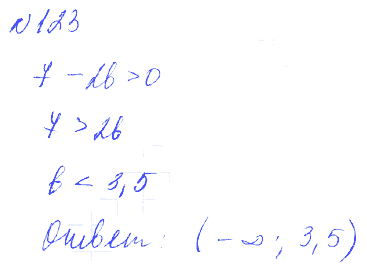 №123
7 - 2в > 0
7 > 2в
в < 3,5
Ответ: (-∞; 3,5)